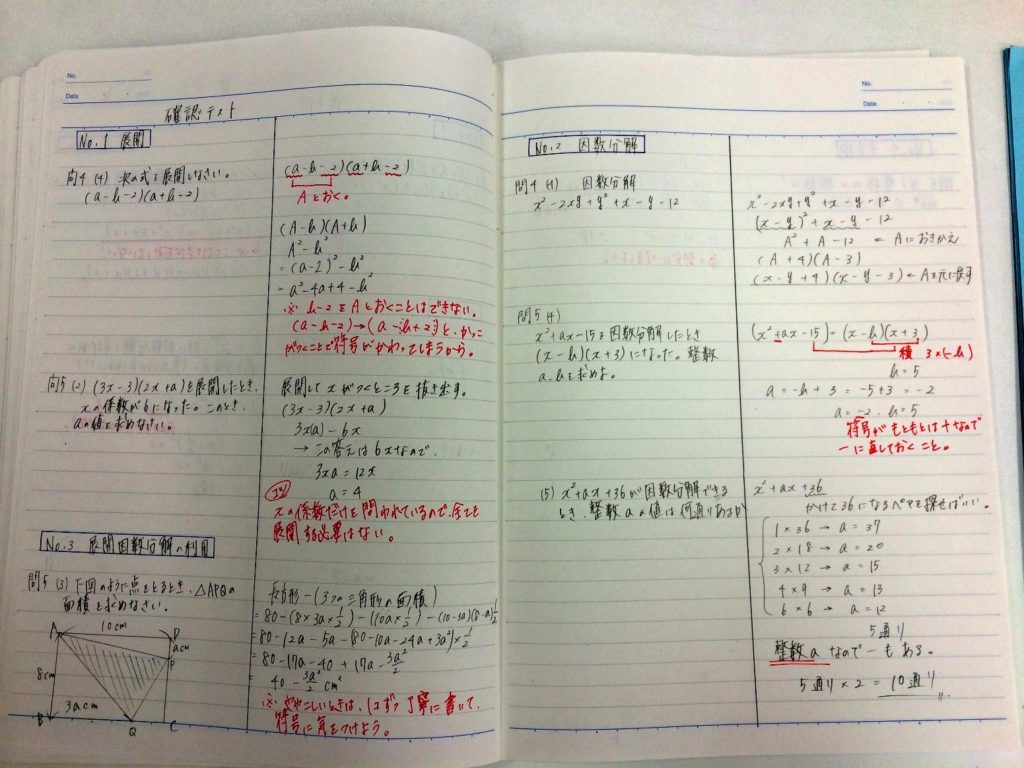 No.
Date
確認テスト
No.1 展開
問4 (4) 次の式を展開しなさい。
(a-b-2)(a+b-2)
(a-b-2)(a+b-2)
Aとおく。
(A-b)(A+b)
A²-b²
=(a-2)²-b²
=a²-4a+4-b²
※ b-2をAとおくことはできない。
(a-b-2)→(a-(b+2))と、かっこ
がつくことで符号がかわってしまうから。
問5 (2) (3x-3)(2x+a)を展開したとき、
xの係数が6になった。このとき、
aの値を求めなさい。
展開してxがつくところを抜き出す。
(3x-3)(2x+a)
3x(a)-6x
→ この答えは6xなので、
3xa=12x
a=4
xの係数だけを問われているので、全てを
展開する必要はない。
No.3 展開因数分解の利用
問5 (3) 下図のように点をとるとき、△APQの
面積を求めなさい。
10cm
A
D
acm
P
8cm
B
3acm
Q
C
長方形-(3つの三角形の面積)
=80-(8×3a×1/2)-(10a×1/2)-(10-3a)(8-a)1/2
=80-12a-5a-(80-10a-24a+3a²)×1/2
=80-17a-40+17a-3a²/2
40-3a²/2 cm²
※ ややこしいときは、1つずつ丁寧に書いて、
符号に気をつけよう。
No.
Date
No.2 因数分解
問4 (4) 因数分解
x²-2xy+y²+x-y-12
x²-2xy+y²+x-y-12
(x-y)²+x-y-12
A²+A-12 ← Aにおきかえ
(A+4)(A-3)
(x-y+4)(x-y-3)←Aを元に戻す
問5 (4)
x²+ax-15を因数分解したとき
(x-b)(x+3)になった。整数
a.bを求めよ。
(x²+ax-15)=(x-b)(x+3)
積 3×(-b)
b=5
a=-b+3=-5+3=-2
a=-2, b=5
符号がもともとは+なので
-に直しておくこと。
(5) x²+ax+36が因数分解できる
とき、整数aの値は何通りあるか
x²+ax+36
かけて36になるペアを探せばいい。
1×36→a=37
2×18→a=20
3×12→a=15
4×9→a=13
6×6→a=12
5通り
整数aなので-もある。
5通り×2=10通り